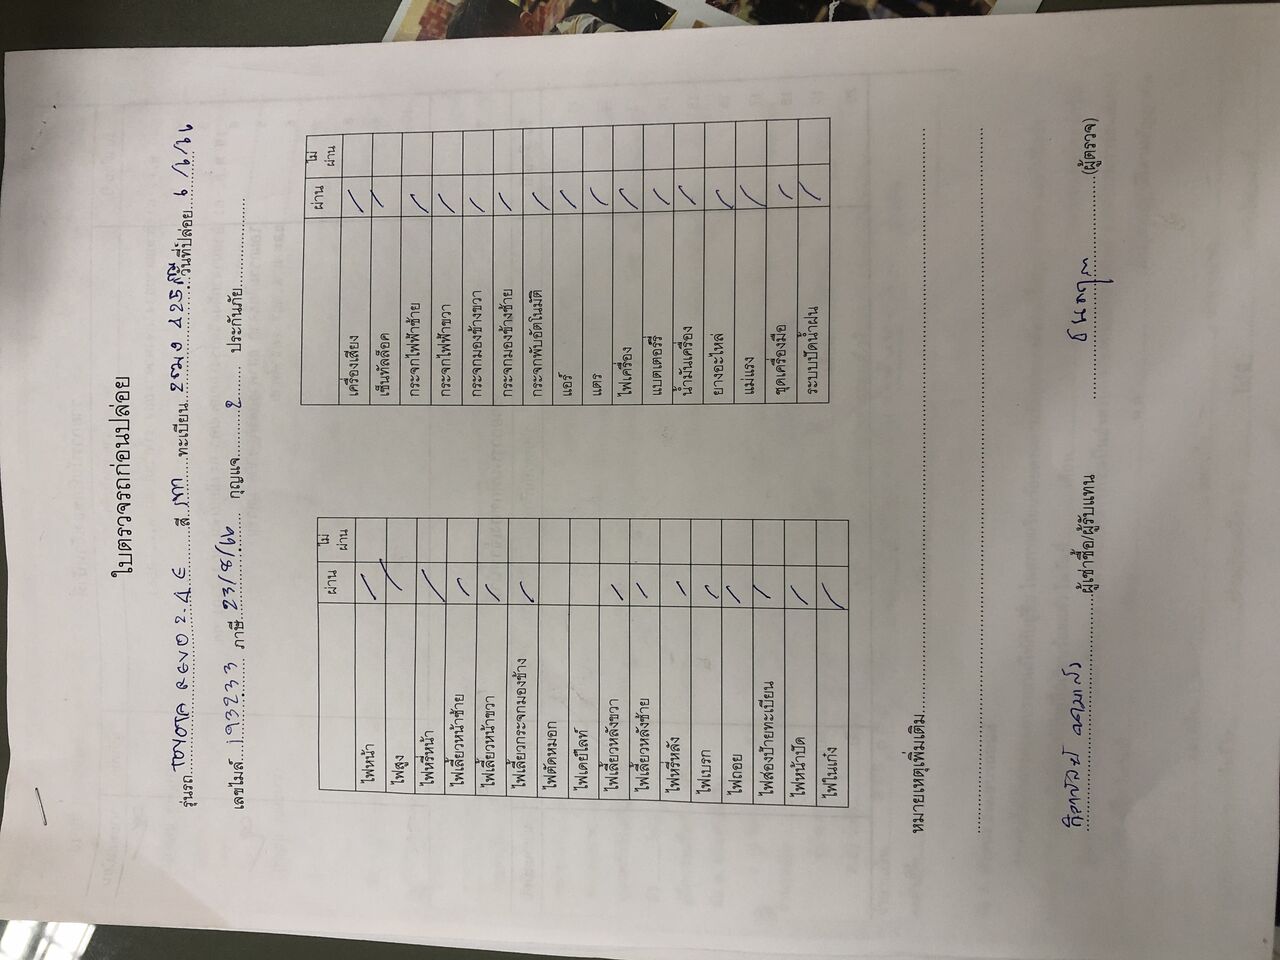 ใบตรวจรถก่อนปล่อย
รุ่นรถ TOYOTA REVO 2.4 E สี เทา ทะเบียน วันที่ปล่อย 6/6/66
เลขไมล์ 193233 ภาษี 23/8/66 กุญแจ 2 ประกันภัย
ผ่าน ไม่ผ่าน
ไฟหน้า /
ไฟสูง /
ไฟหรี่หน้า /
ไฟเลี้ยวหน้าซ้าย /
ไฟเลี้ยวหน้าขวา /
ไฟเลี่ยวกระจกมองข้าง /
ไฟตัดหมอก
ไฟเดย์ไลท์
ไฟเลี้ยวหลังขวา /
ไฟเลี้ยวหลังซ้าย /
ไฟหรี่หลัง /
ไฟเบรก /
ไฟถอย /
ไฟส่องป้ายทะเบียน /
ไฟหน้าปัด /
ไฟในเก๋ง /
ผ่าน ไม่ผ่าน
เครื่องเสียง /
เซ็นทัลล็อค /
กระจกไฟฟ้าซ้าย /
กระจกไฟฟ้าขวา /
กระจกมองข้างขวา /
กระจกมองข้างซ้าย /
กระจกพับอัตโนมัติ /
แอร์ /
แตร /
ไฟเครื่อง /
แบตเตอรรี่ /
น้ำมันเครื่อง /
ยางอะไหล่ /
แม่แรง /
ชุดเครื่องมือ /
ระบบปัดน้ำฝน /
หมายเหตุเพิ่มเติม
ผู้เช่าซื้อ/ผู้รับแทน (ผู้ตรวจ)